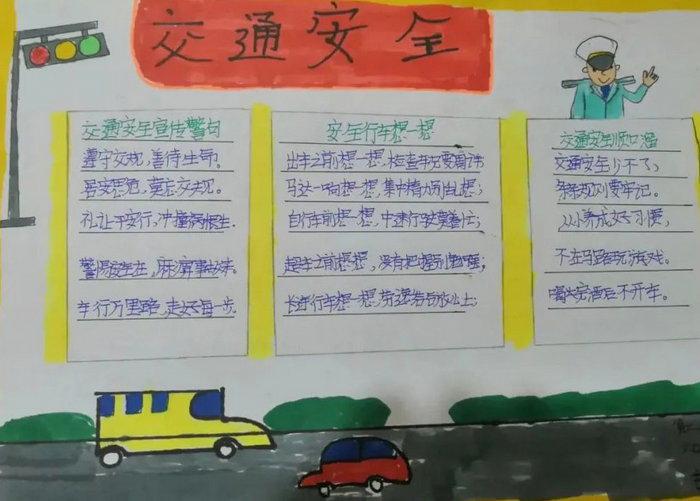 交通安全
交通安全宣传警句
遵守交规，善待生命。
居安思危，莫忘交规。
礼让平安行，冲撞祸根生.
警惕安全在，麻痹事故来。
车行万里路，走好每一步。
安全行车想一想
出车之前想一想，检查车况要周详
马达一响想一想，集中精力别乱想；
自行车前想一想，中速行驶莫着忙；
超车之前想想，没有把握别勉强；
长途行车想一想，劳逸结合放心上；
交通安全顺口溜
交通安全少不了，
条条规则要牢记。
从小养成好习惯，
不在马路玩游戏。
喝完酒后不开车。